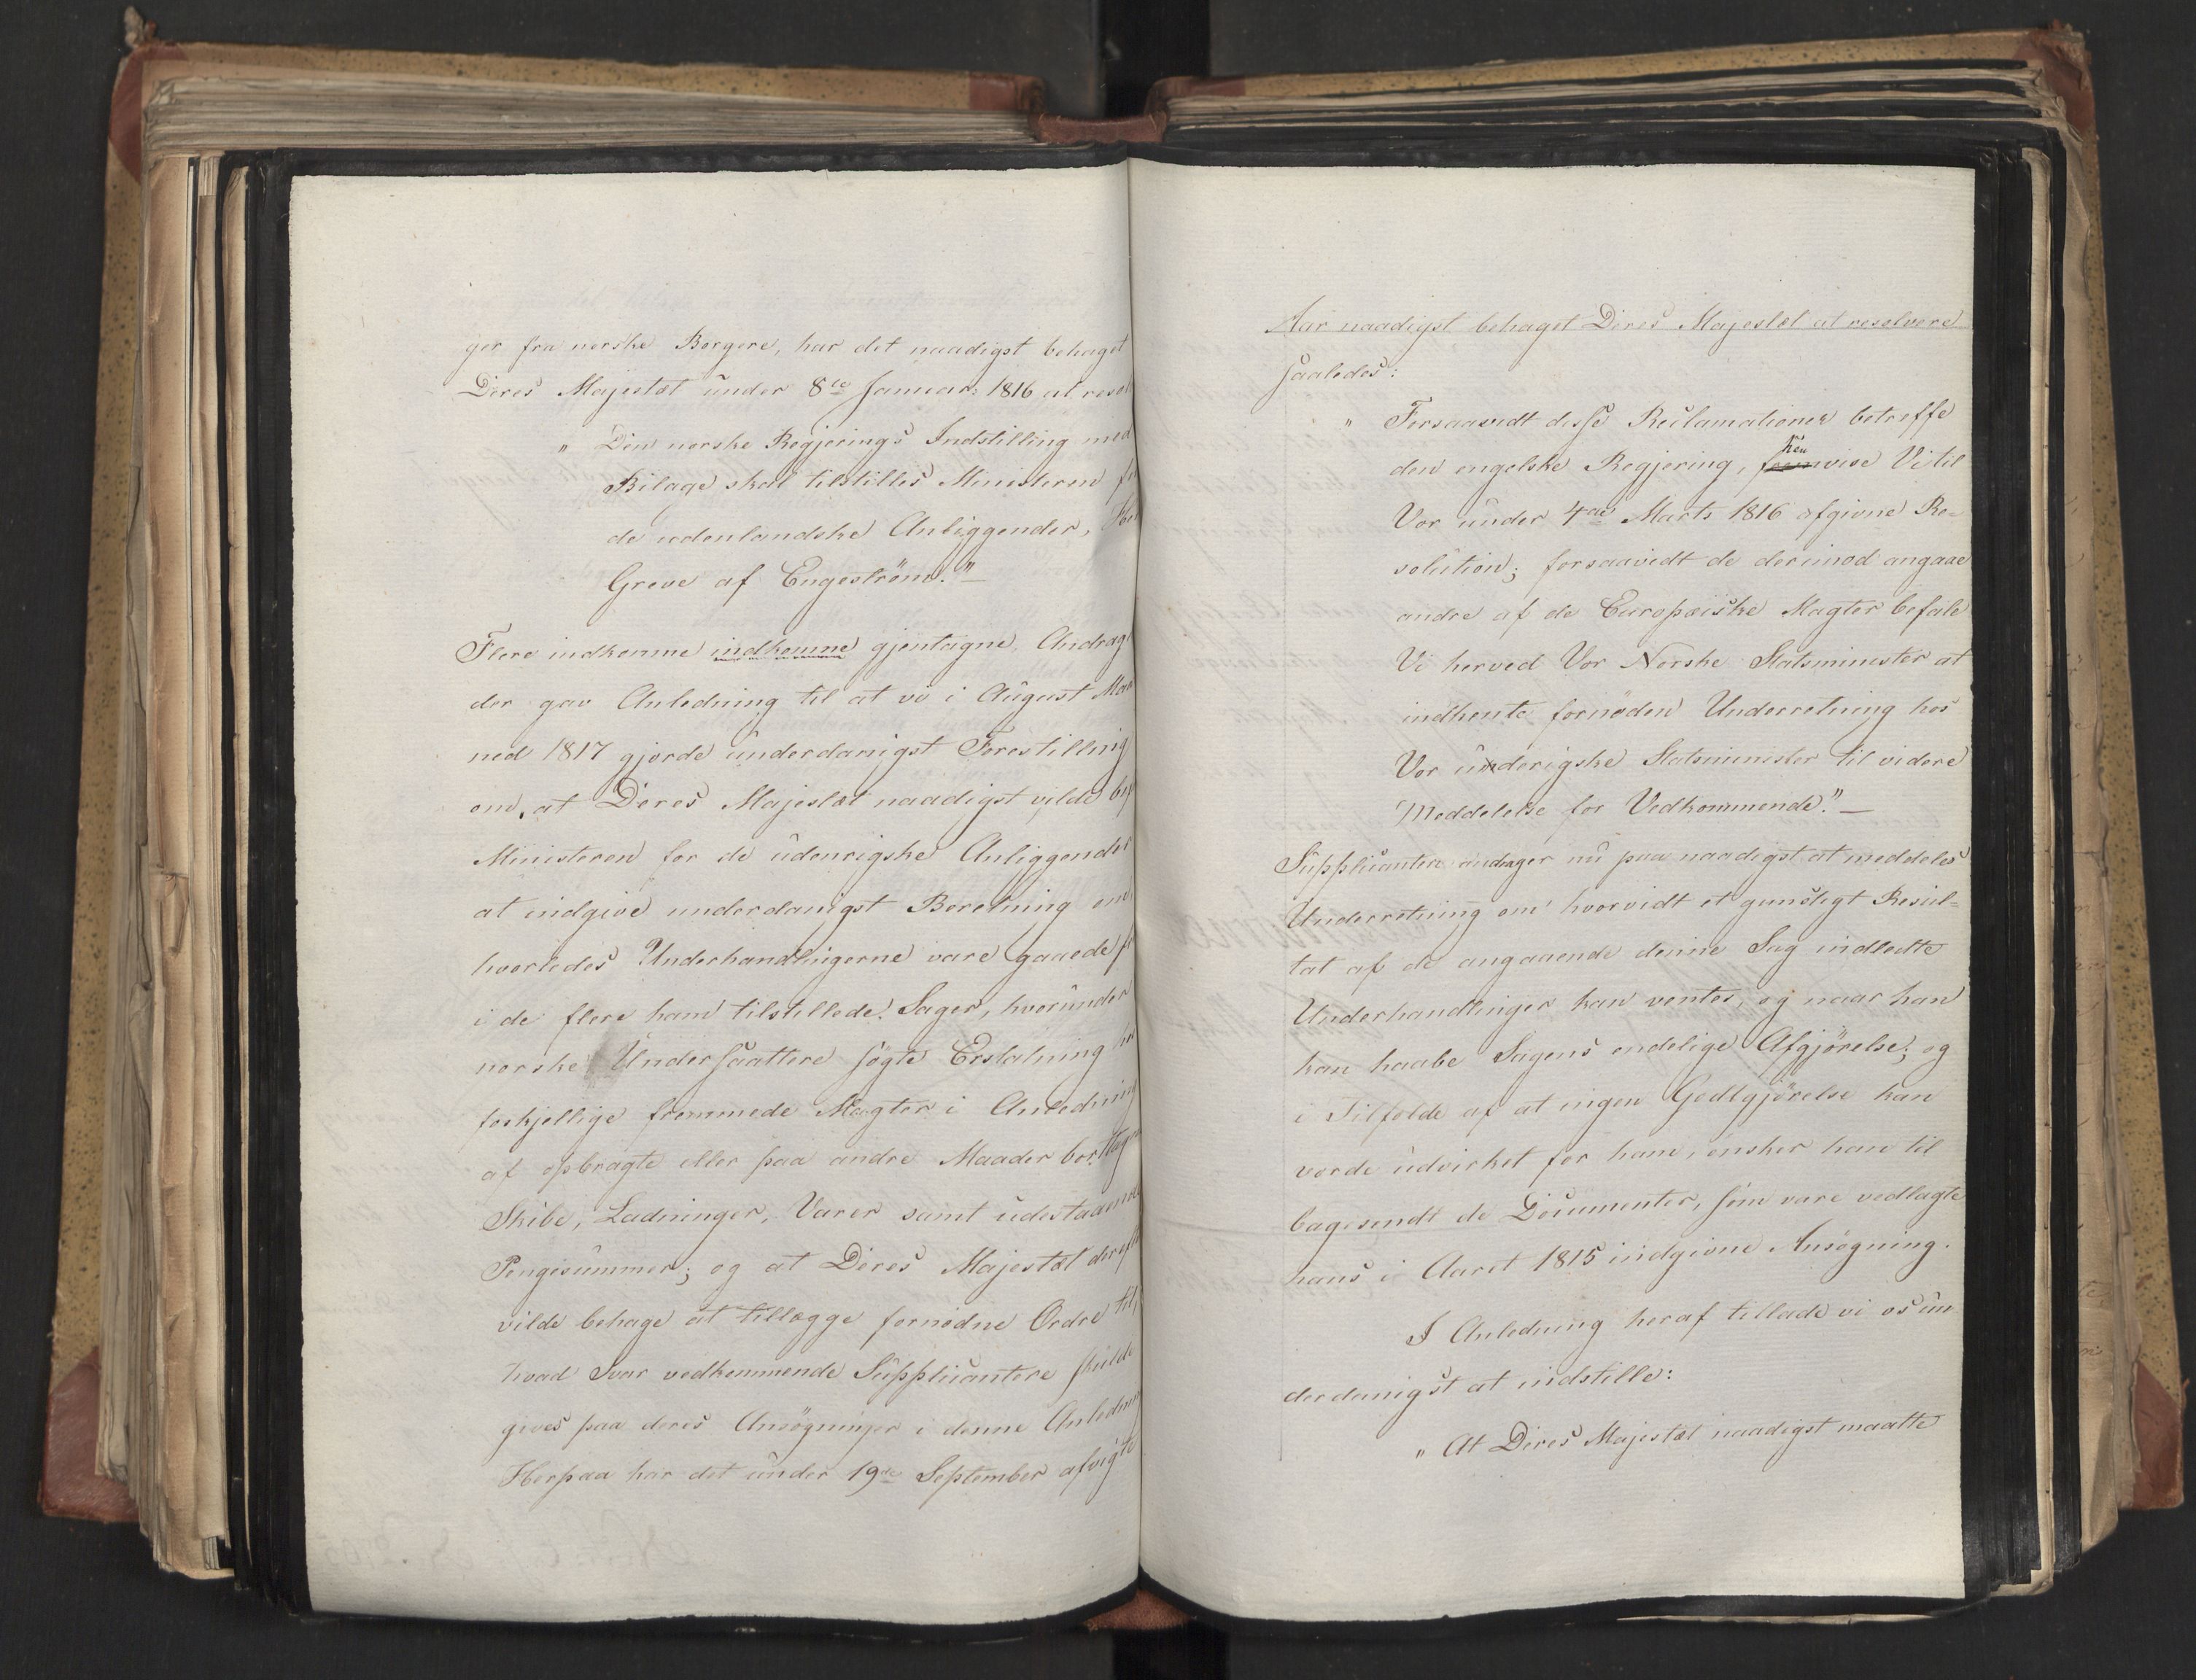 ger fra norske Borgere, har det naadigst behaget
Deres Majestæt under 8de Januar: 1816 at resol
„ Den norske Regjerings Indstilling med
Bilage skal tilstilles Ministeren fo
de udenlandske Anliggender, Her
Greve af Engeström."
Flere indkomne indkomne gjentagne Andrag
der gav Anledning til at vi i August Maa
ned 1817 gjorde underdanigst Forestilling
om, at Deres Majestæt naadigst vilde bef
Ministeren for de udenrigske Anliggender
at indgive underdanigst Beretning om
hvorledes Underhandlingerne vare gaaede fr
i de flere ham tilstillede Sager, hvorunder
norske Undersaattere søgte Erstatning hos
forskjellige fremmede Magter i Anledning
af opbragte eller paa andre Maader borttagn
Skibe, Ladninger, Varer samt udestaaende
Pengesummer; og at Deres Majestæt dereft
vilde behage at tillægge fornødne Ordre til,
hvad Svar vedkommende Supplicantere skulde
gives paa deres Ansøgninger i denne Anledning
Herpaa har det under 19de September afvigte
Aar naadigst behaget Deres Majestæt at resolvere
saaledes:
„ Forsaavidt disse Reclamationer betreffe
den engelske Regjering, henvise Vi til
Vor under 4de Marts 1816 afgivne Re=
solution; forsaavidt de derimod angaae
andre af de Europæiske Magter befale
Vi herved Vor Norske Statsminister at
indhente fornøden Underretning hos
Vor uderigske Statsminister til videre
Meddelelse for Vedkommende."
Supplicanten andrager nu paa naadigst at meddeles
Underretning om hvorvidt et gunstigt Resul=
tat af de angaaende denne Sag indledte
Underhandlinger kan ventes, og naar han
kan haabe Sagens endelige Afgjörelse; og
i Tilfælde af at ingen Godtgjörelse kan
vorde udvirket for ham, ønsker han til
bagesendt de Documenter, som vare vedlagte
hans i Aaret 1815 indgivne Ansøgning.
I Anledning heraf tillade vi os un
derdanigst at indstille:
„ At Deres Majestæt naadigst maatte